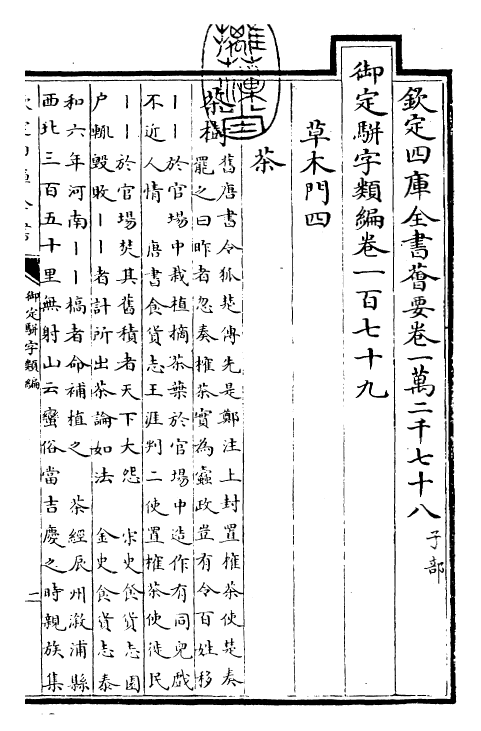 欽定四庫全書薈要卷一萬二千七十八 子部
御定駢字類編卷一百七十九
草木門四
茶
茶樹 舊唐書令狐楚傳先是鄭注上封置榷茶使楚奏
罷之曰昨者忽奏榷茶實為蠹政豈有令百姓移
丨丨於官場中栽植摘茶葉於官場中造作有同兒戲
不近人情 唐書食貨志王涯判二使置榷茶使徙民
丨丨於官場焚其舊積者天下大怨 宋史食貨志園
户輒毀敗丨丨者計所出茶論如法 金史食貨志泰
和六年河南丨丨槁者命補植之 茶經辰州溆浦縣
西北三百五十里無射山云蠻俗當吉慶之時親族集
御定駢字類編
一